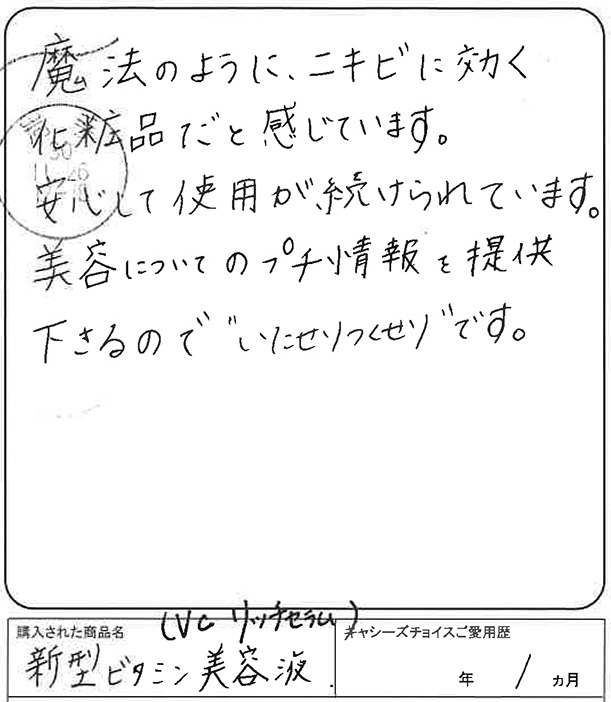 魔法のように、ニキビに効く
化粧品だと感じています。
安心して使用が、続けられています。
美容についてのプチ情報を提供
下さるので〝いたせりつくせり〟です。
(VC リッチセラム)
購入された商品名
キャシーズチョイスご愛用歴
新型ビタミン美容液.
年 / ヵ月